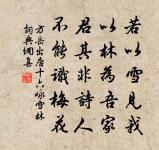 若以雪見我
以林為吾家
君其非詩人
不能識梅花
方岳出居十六詠雪林
詞典網集